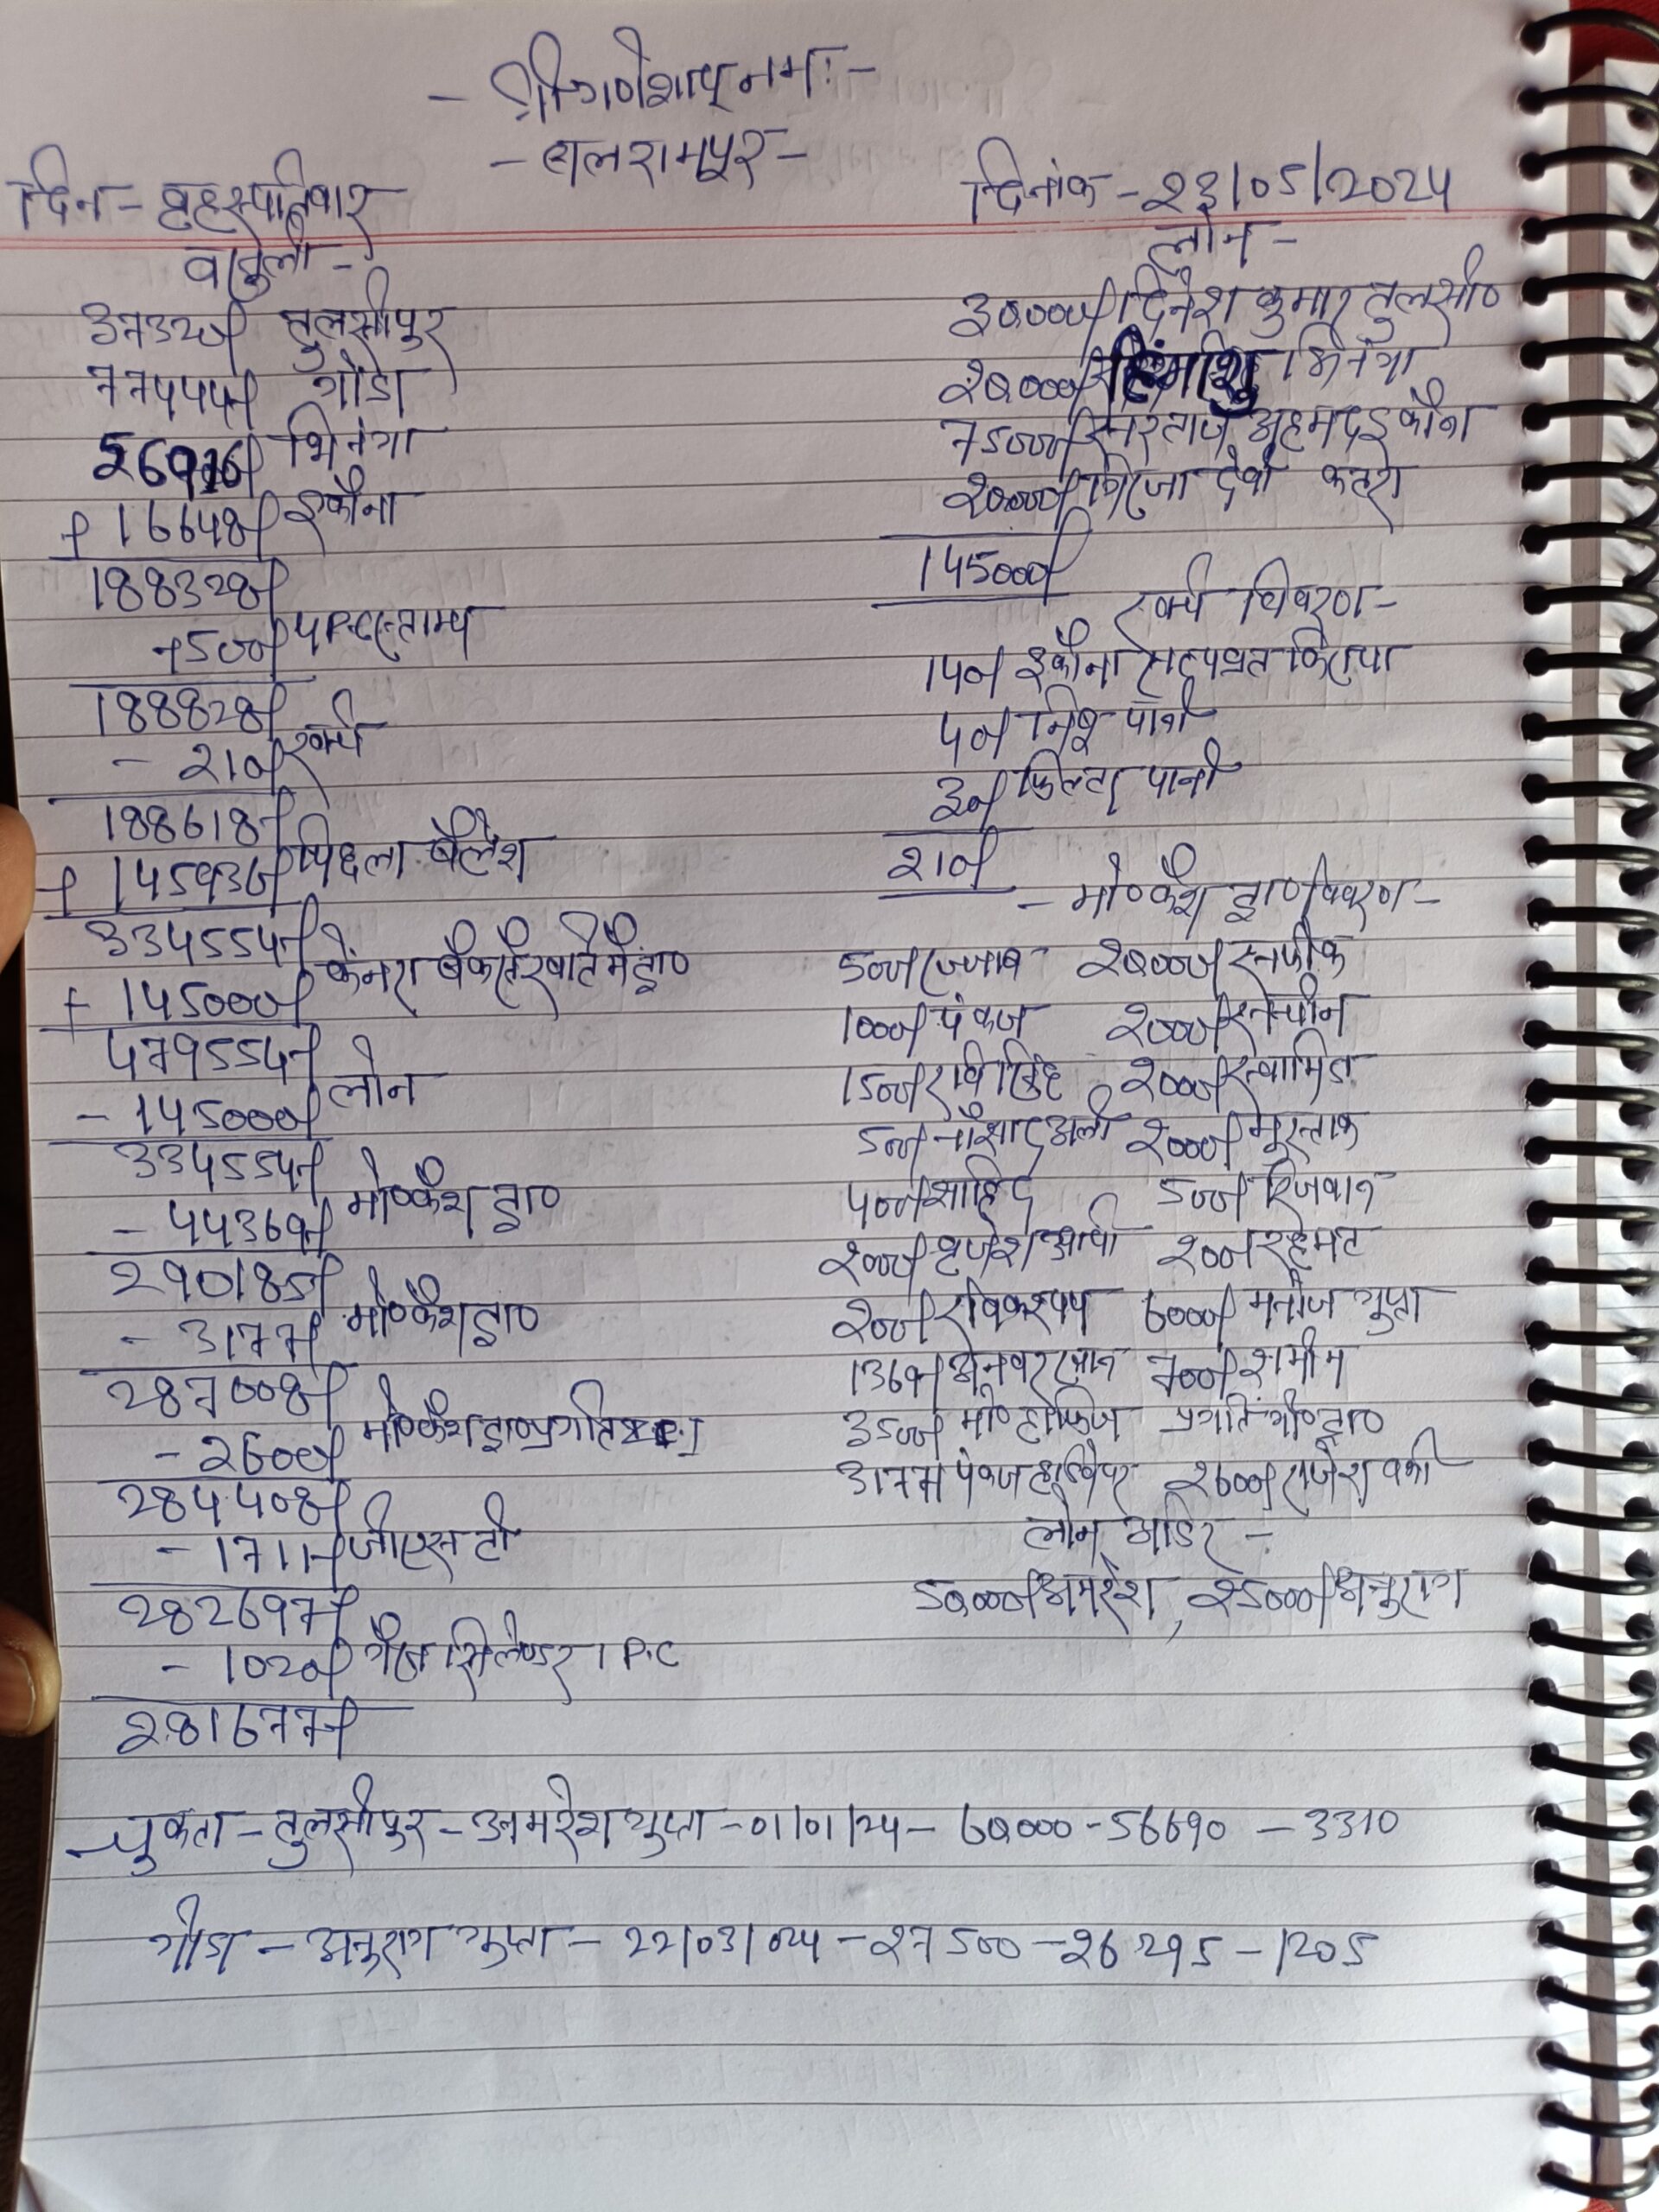 - श्री गणेशाय नमः -
- बलरामपुर -
दिन - बृहस्पतिवार
दिनांक - 23/05/2024
वसूली -
37320/ तुलसीपुर
77444/ गोंडा
56916/ भिनगा
+ 16648/ इकौना
188328/
+500/ 4 P.C स्टाम्प
188828/
- 210/ खर्च
188618/
+ 145936/ पिछला बैलेंश
334554/
+ 145000/ केनरा बैंक खाते में ड्रा०
479554/
- 145000/ लोन
334554/
- 44369/ मो० कैश ड्रा०
290185/
- 3177/ मो० कैश ड्रा०
287008/
- 2600/ मो० कैश ड्रा० प्रगति
284408/
- 1711/ जीएसटी
282697/
- 1020/ गैस सिलेण्डर 1 P.C
281677/
लोन -
30,000/ दिनेश कुमार तुलसी०
20,000/ हिमांशु भिनगा
75000/ सरताज अहमद इकौना
20000/ गिरजा देवी कटरा
145000/
खर्च विवरण -
140/ इकौना सत्यव्रत किराया
40/ निम्बू पानी
30/ फिल्टर पानी
210/
- मो० कैश ड्रा० विवरण -
500/ रज्जाब 20,000/ सफीक
1000/ पंकज 2000/
1500/ रवि सिंह 2000/
500/ नौशाद अली 2000/ मुस्ताक
400/ शाहिद 500/ रिजवान
2000/ बृजेश आर्या 200/ रहमट
200/ रवि कश्यप 6000/ मनोज गुप्ता
1369/ अनवर खान 700/ शमीम
3500/ मो० हाफिज प्रगति मो० ड्रा०
3177/ पंकज 2600/ राजेश वर्मा
लोन आर्डर -
50,000/ अमरेश, 25000/ अनुराग
चुकता - तुलसीपुर - अमरेश गुप्ता - 01/01/24 - 60,000 - 56690 - 3310
गोंडा - अनुराग गुप्ता - 22/03/024 - 27500 - 26295 - 1205